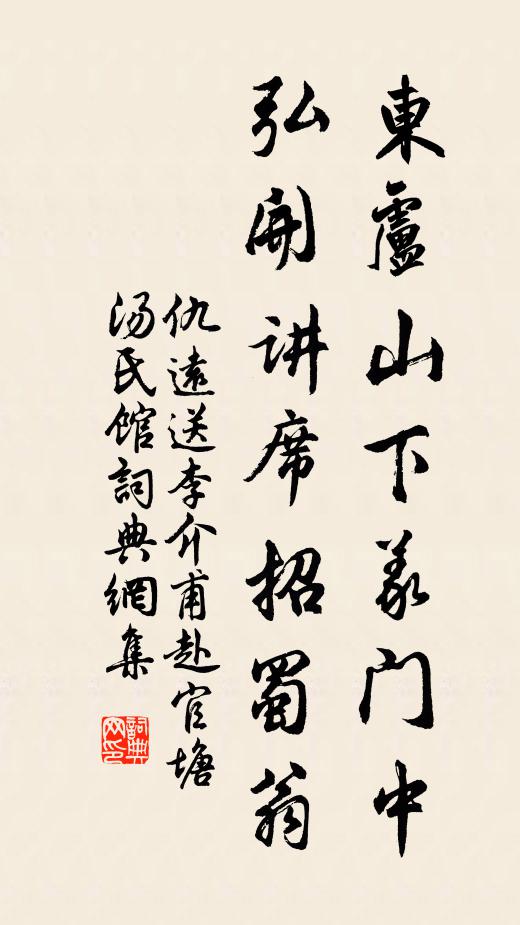 東廬山下義門中
弘開讲席招蜀翁
仇遠送李介甫赴官塘
汤氏館詞典網集
詞典
网印